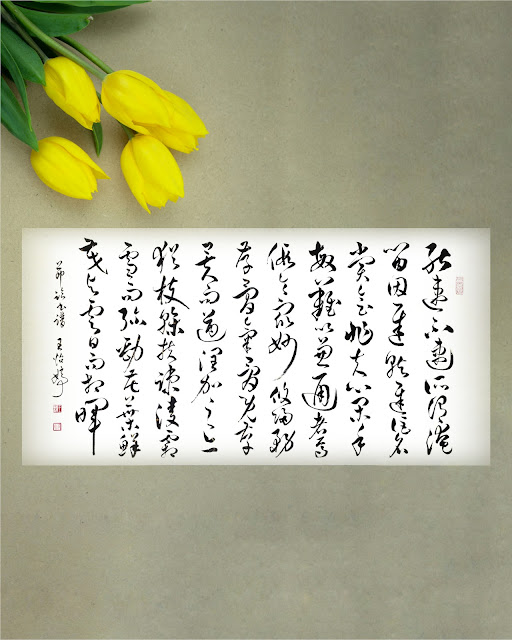 能速不速所謂淹
留因遲就遲詎名
賞會非夫心閑手
敏難以兼通者焉
假令眾妙攸歸務
存骨氣骨既存
矣而遒潤加之亦
猶枝幹扶疏凌霜
雪而彌勁花葉鮮
茂與雲日而相暉
節臨書譜 王怡婷